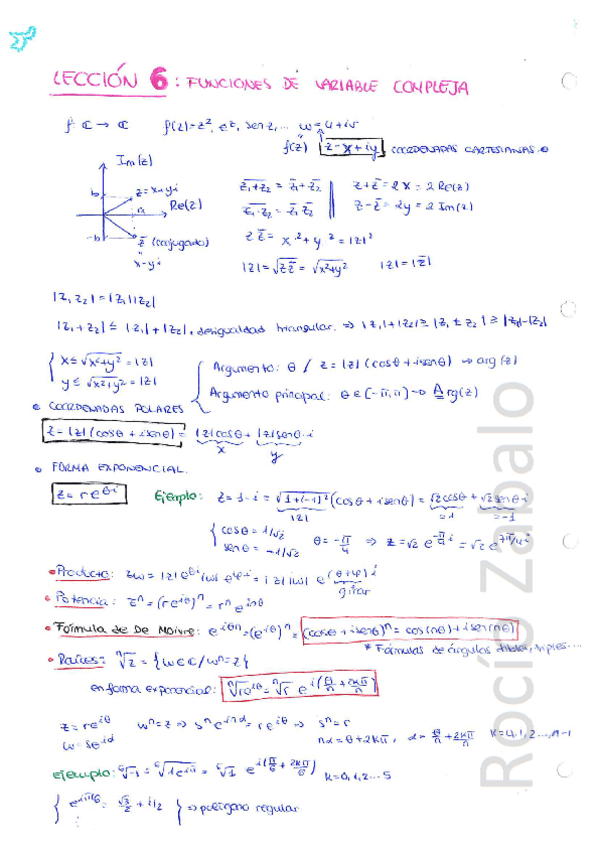 LECCIÓN 6: FUNCIONES DE VARIABLE COMPLEJA
f: ℂ → ℂ f(z)=z², e^z, sen z,... w=u+iv
f(z) z=x+iy COORDENADAS CARTESIANAS.
Im(z)
b z=x+yi
a Re(z)
-b z̄ (conjugado)
x-yi
\overline{z₁+z₂} = z̄₁+z̄₂ z+z̄=2x=2Re(z)
\overline{z₁·z₂} = z̄₁·z̄₂ z-z̄=2y=2Im(z)
z z̄ = x²+y²=|z|²
|z|=√(z z̄)=√(x²+y²) |z|=|z̄|
|z₁z₂|=|z₁||z₂|
|z₁+z₂| ≤ |z₁|+|z₂|, desigualdad triangular. ⇒ |z₁|+|z₂| ≥ |z₁±z₂| ≥ |z₁|-|z₂|
x≤√(x²+y²)=|z|
y≤√(x²+y²)=|z|
Argumento: θ / z=|z|(cosθ+isenθ) → arg(z)
Argumento principal: θ∈[-π,π] → Arg(z)
COORDENADAS POLARES
z=|z|(cosθ+isenθ)=|z|cosθ+|z|senθ·i
x y
FORMA EXPONENCIAL.
z=re^{θi} Ejemplo: z=1-i=√(1+(-1)²)(cosθ+isenθ)=√2cosθ+√2senθ·i
|z| =1 =-1
cosθ=1/√2
senθ=-1/√2
θ=-π/4 ⇒ z=√2 e^{-π/4 i}=√2 e^{7π/4 i}
Producto: zw=|z|e^{θi}|w|e^{φi}=|z||w|e^{(θ+φ)i}
girar
Potencia: z^n=(re^{iθ})^n=r^n e^{inθ}
Fórmula de De Moivre: e^{iθn}=(e^{iθ})^n=(cosθ+isenθ)^n=cos(nθ)+isen(nθ)
* Fórmulas de ángulos dobles, triples....
Raíces: ⁿ√z={w∈ℂ/w^n=z}
en forma exponencial: ⁿ√(re^{iθ})=ⁿ√r e^{i(θ/n+2kπ/n)}
z=re^{iθ} w^n=z ⇒ s^n e^{inα}=re^{iθ} ⇒ s^n=r
w=se^{iα} nα=θ+2kπ, α=θ/n+2kπ/n k=0,1,2...,n-1
ejemplo: ⁶√-1=⁶√(1e^{iπ})=⁶√1 e^{i(π/6+2kπ/6)} k=0,1,2...5
e^{iπ/6}=√3/2+i1/2 ⇒ polígono regular
Rocío Zabalo